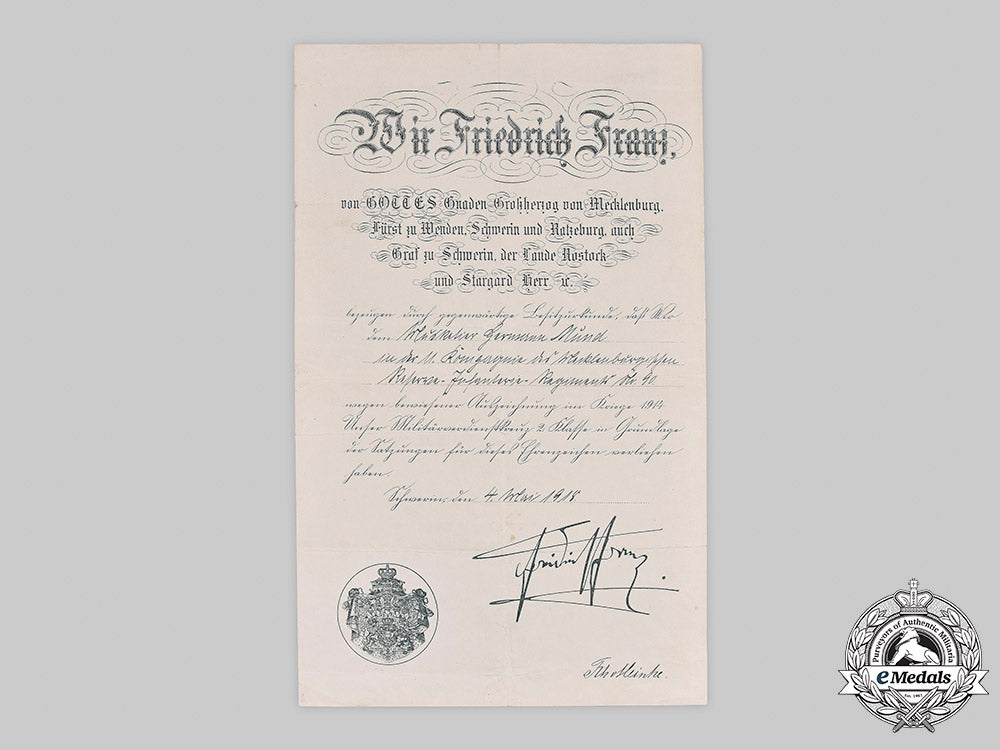 Wir Friedrich Franz,
von GOTTES Gnaden Großherzog von Mecklenburg,
Fürst zu Wenden, Schwerin und Ratzeburg, auch
Graf zu Schwerin, der Lande Rostock
und Stargard Herr ꝛc.
bezeugen durch gegenwärtige Besitzurkunde, daß Wir
dem Musketier Hermann Mund
in der 11. Kompagnie des Mecklenburgischen
Reserve-Infanterie-Regiments No. 90
wegen bewiesener Auszeichnung im Kriege 1914
Unser Militärverdienstkreuz 2. Klasse in Grundlage
der Satzungen für dieses Ehrenzeichen verliehen
haben.
Schwerin, den 4. Mai 1918.
Friedrich Franz.
Purveyors of Authentic Militaria
eMedals